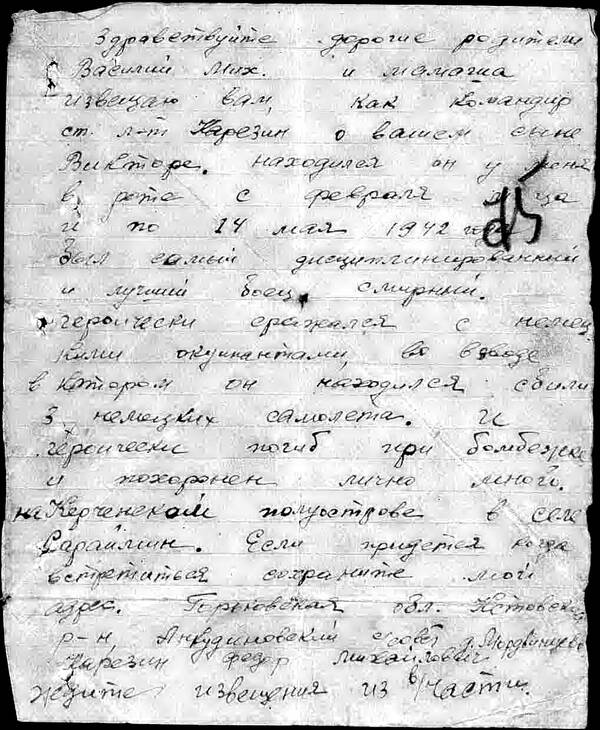 Здравствуйте дорогие родители
Василий Мих. и мамаша
извещаю вам, как командир
ст. л-т Карезин о вашем сыне
Викторе. находился он у меня
в роте с февраля м-ца
и по 14 мая 1942 года
был самый дисциплинированный
и лучший боец, смирный.
героически сражался с немец
кими окупантами, во взводе
в котором он находился сбили
3 немецких самолета. И
героически погиб при бомбежке
и похоронен лично мною.
на Керченском полуострове в селе
Сараймин. Если придется когда
встретиться сохраните мой
адрес. Горьковская обл. Кстовский
р-н, Анкудиновский с/совет д.
Карезин Федор Михайлович
Ждите извещения из в/части.